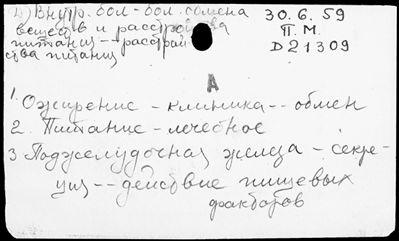 2) Внутр. бол-бол. обмена
веществ и расстройства
питания -- расстрой-
ства питания
30.6.59
П.М.
D21309
А
1. Ожирение - клиника -- обмен
2. Питание - лечебное
3 Поджелудочная железа - секре-
ция -- действие пищевых
факторов